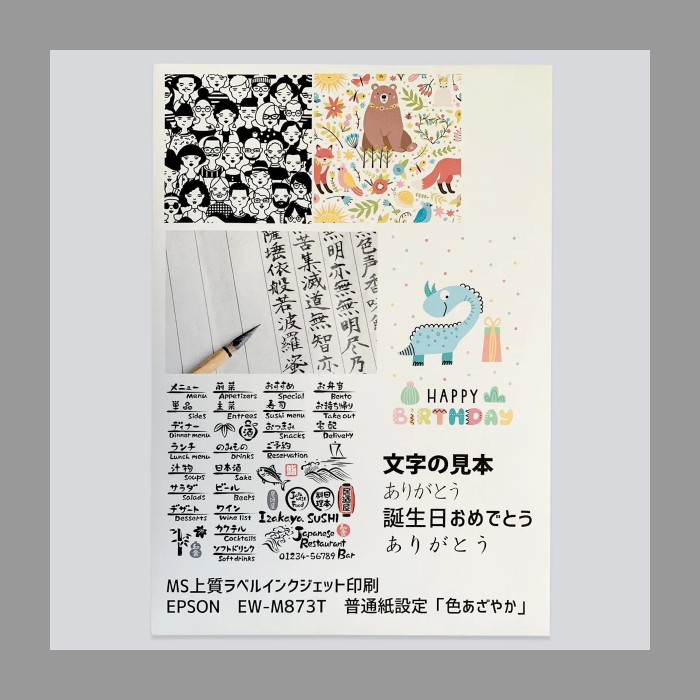 色声香味
無明亦無無明尽乃
苦集滅道無智亦
依般若波羅蜜
メニュー 前菜 おすすめ お弁当
Menu Appetizers Special Bento
単品 主菜 寿司 お持ち帰り
Sides Entrees Sushi menu Take out
ディナー 酒 おつまみ 宅配
Dinner menu Snacks Delivery
ランチ のみもの ご予約
Lunch menu Drinks Reservation
汁物 日本酒
Soups Sake
サラダ ビール
Salads Beers
居酒屋
デザート ワイン
Desserts Wine list
Izakaya SUSHI
カクテル
Cocktails
Japanese
Restaurant
ソフトドリンク
Soft drinks
01234-56789 Bar
HAPPY
BIRTHDAY
文字の見本
ありがとう
誕生日おめでとう
ありがとう
MS上質ラベルインクジェット印刷
EPSON EW-M873T 普通紙設定「色あざやか」